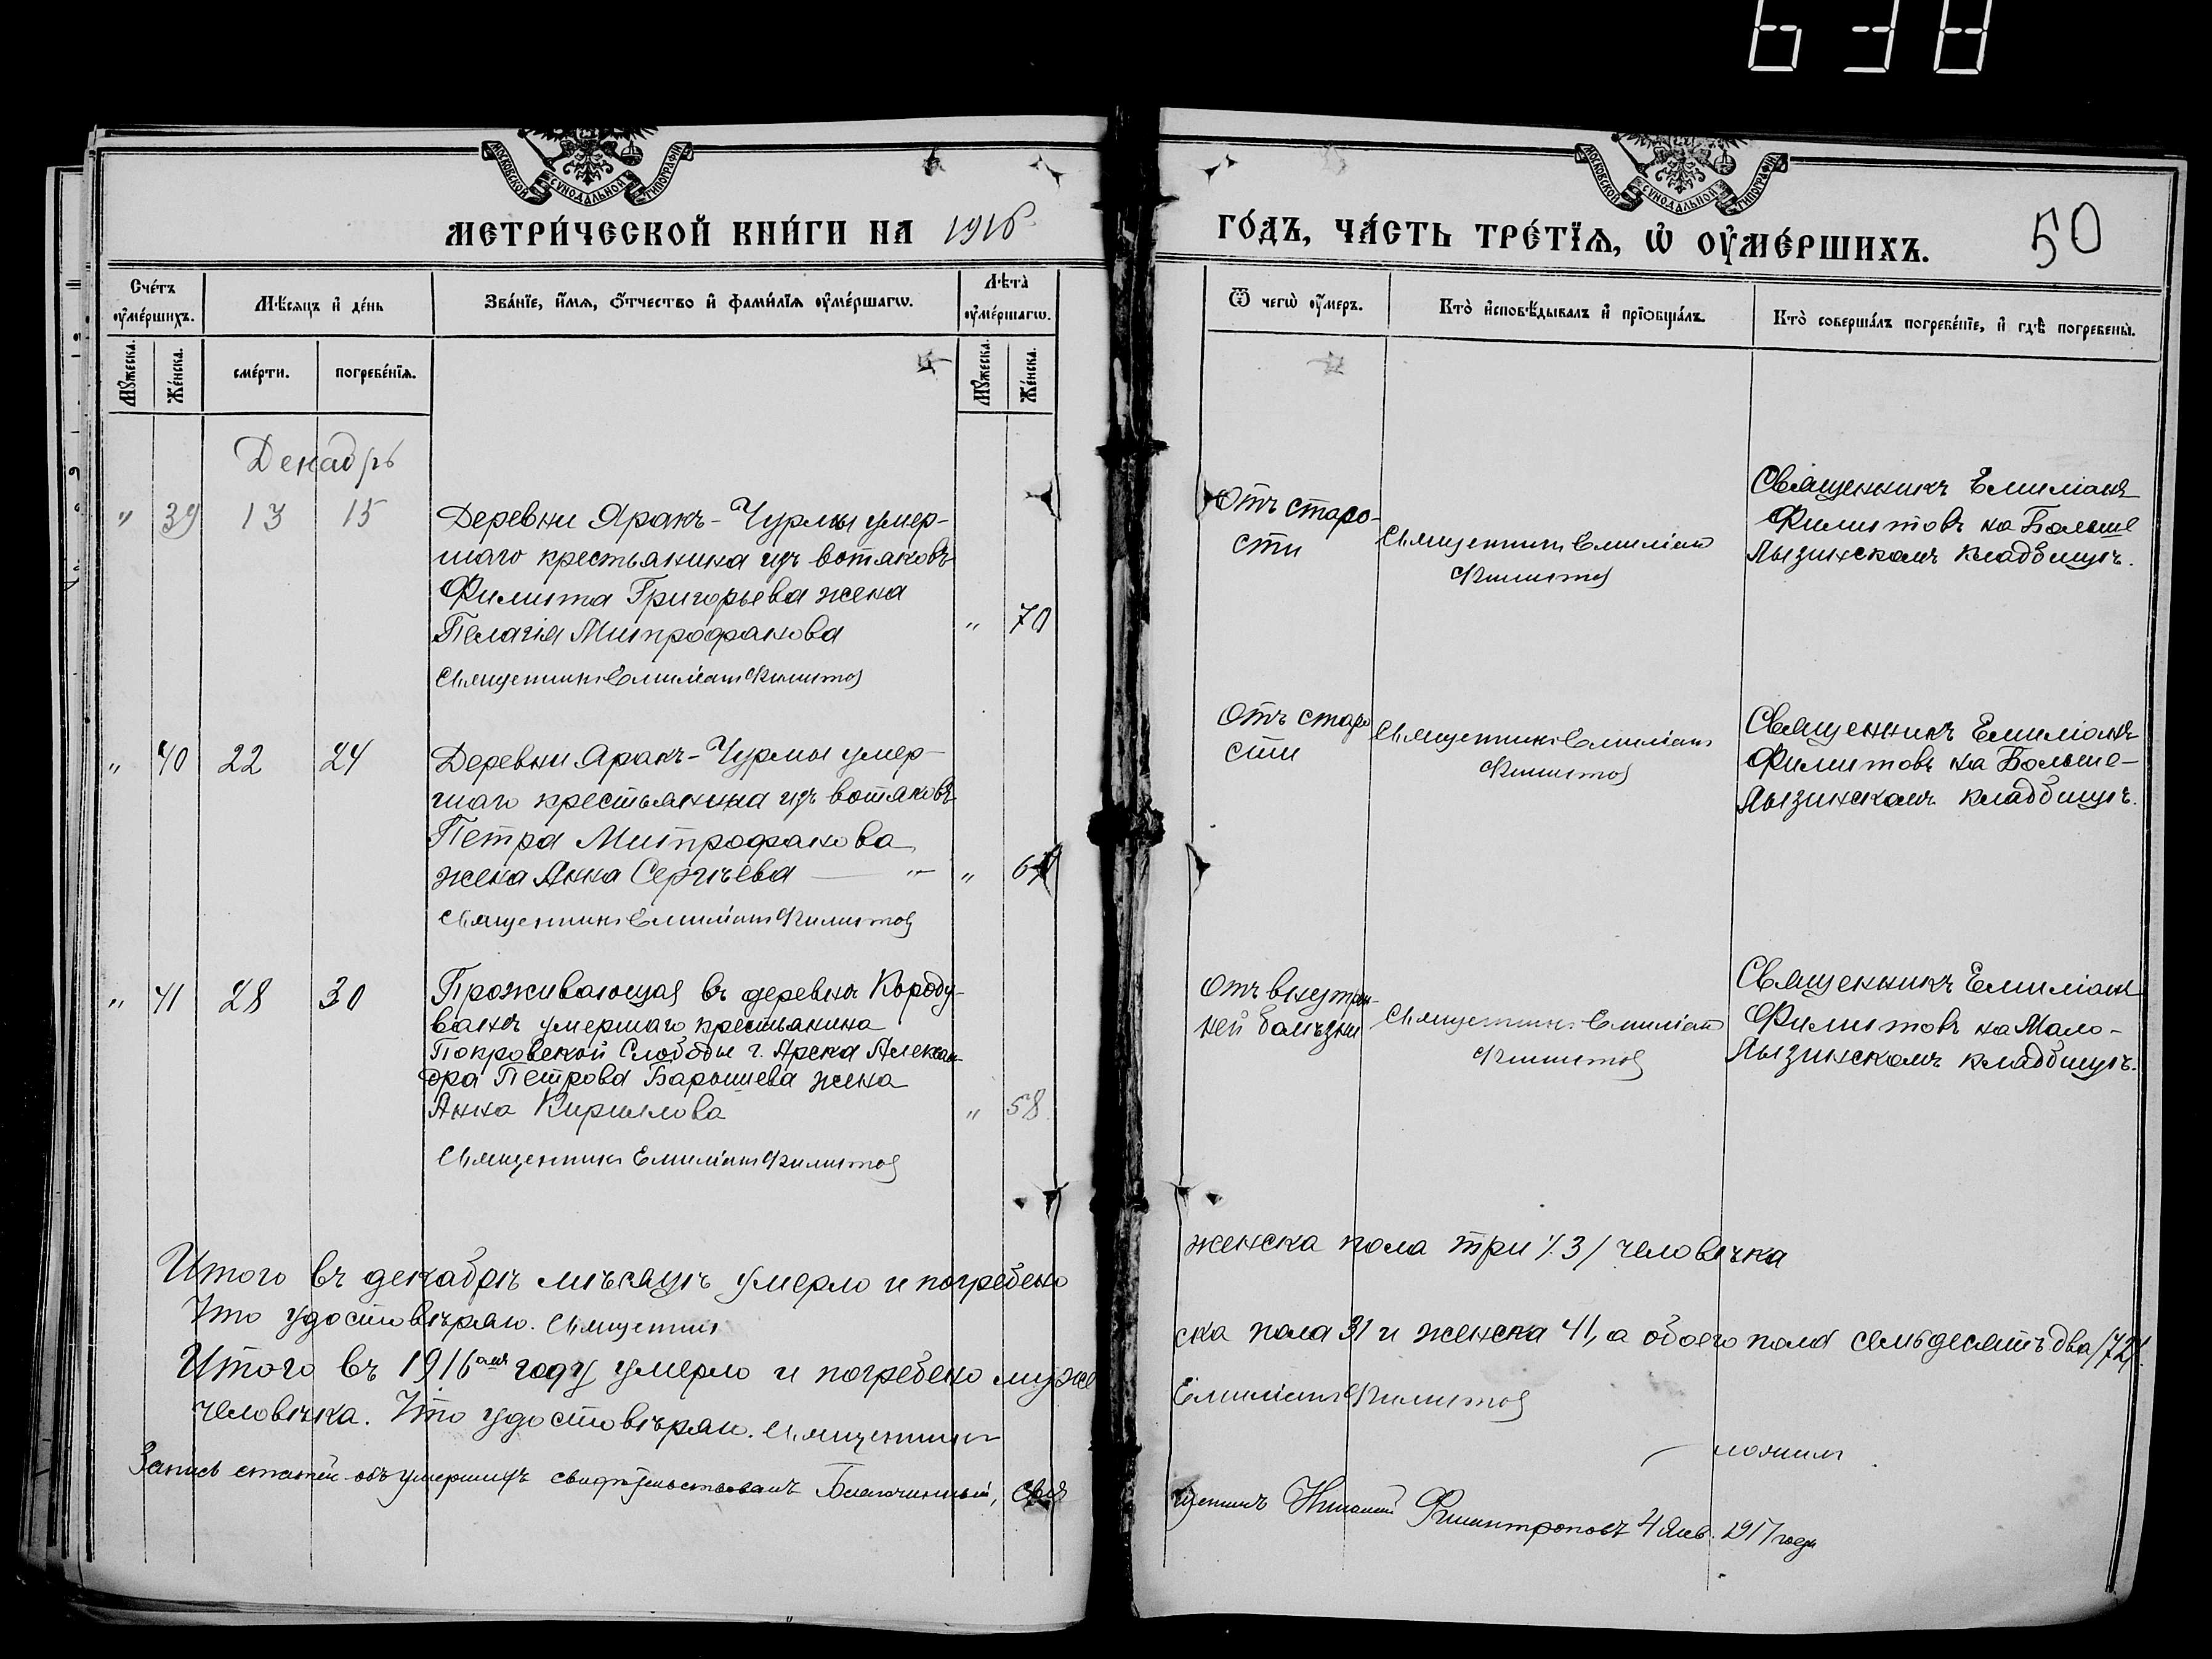 638
МОСКОВСКОЙ СѴНОДАЛЬНОЙ ТИПОГРАФІИ
МОСКОВСКОЙ СѴНОДАЛЬНОЙ ТИПОГРАФІИ
МЕТРИ́ЧЕСКОЙ КНИ́ГИ НА 1916
ГО́ДЪ, ЧА́СТЬ ТРЕ́ТЇѦ, Ѡ҆ ОУ҆МЕ́РШИХЪ.
50
Сче́тъ оу҆ме́ршихъ.
Мѣ́сяцъ и҆ де́нь
Зва́нїе, и҆́мѧ, ѻ҆́тчество и҆ фами́лїѧ оу҆ме́ршагѡ.
Лѣта̀ оу҆ме́ршагѡ.
Ѿ чегѡ̀ оу҆́меръ.
Кто̀ и҆сповѣ́дывалъ и҆ прїѡбща́лъ.
Кто̀ соверша́лъ погребе́нїе, и҆ гдѣ̀ погребены̀.
Мꙋ́жеска.
Же́нска.
сме́рти.
погребе́нїѧ.
Мꙋ́жеска.
Же́нска.
Декабрь
" 39 13 15
Деревни Аракъ-Чурмы умер-
шаго крестьянина изъ вотяковъ
Филиппа Григорьева жена
Пелагія Митрофанова " 70
Священникъ Емиліанъ Филиповъ
Отъ старо-
сти
Священникъ Емиліанъ
Филиповъ
Священникъ Емиліанъ
Филиповъ на Больше
Лызинскомъ кладбищѣ.
" 40 22 24
Деревни Аракъ-Чурмы умер-
шаго крестьянина изъ вотяковъ
Петра Митрофанова
жена Анна Сергѣева — " "
Священникъ Емиліанъ Филиповъ
Отъ старо
сти
Священникъ Емиліанъ
Филиповъ
Священникъ Емиліанъ
Филиповъ на Больше-
Лызинскомъ кладбищѣ.
" 41 28 30
Проживающая въ деревнѣ Короду-
ванѣ умершаго крестьянина
Покровской Слободы г. Арска Алексан-
дра Петрова Барышева жена
Анна Кирилова " 58
Священникъ Емиліанъ Филиповъ
Отъ внутрен-
ней болѣзни
Священникъ Емиліанъ
Филиповъ
Священникъ Емиліанъ
Филиповъ на Мало-
Лызинскомъ кладбищѣ.
Итого въ декабрѣ мѣсяцѣ умерло и погребено
женска пола три /3/ человѣка
Что удостовѣряю. Священникъ
Итого въ 1916ом году умерло и погребено муже
ска пола 31 и женска 41, а обоего пола семьдесятъ два /72/.
человѣка. Что удостовѣряю. Священникъ
Емиліанъ Филиповъ
Запись статей объ умершихъ свидѣтельствовалъ Благочинный, свя
щенникъ Филантроповъ 4 Янв. 1917 года